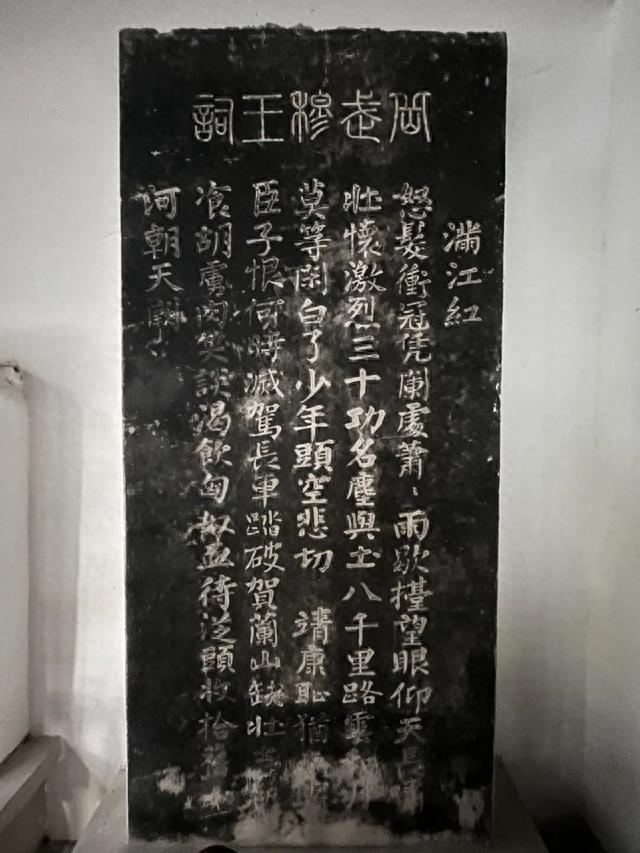 岳武穆王詞
滿江紅
怒髮衝冠凭闌處蕭〻雨歇擡望眼仰天長嘯
壯懷激烈三十功名塵與土八千里路雲和月
莫等閑白了少年頭空悲切 靖康恥猶
臣子恨何時滅駕長車踏破賀蘭山缺壯志
飡胡虜肉笑談渴飲匈奴血待從頭收拾舊
河朝天闕